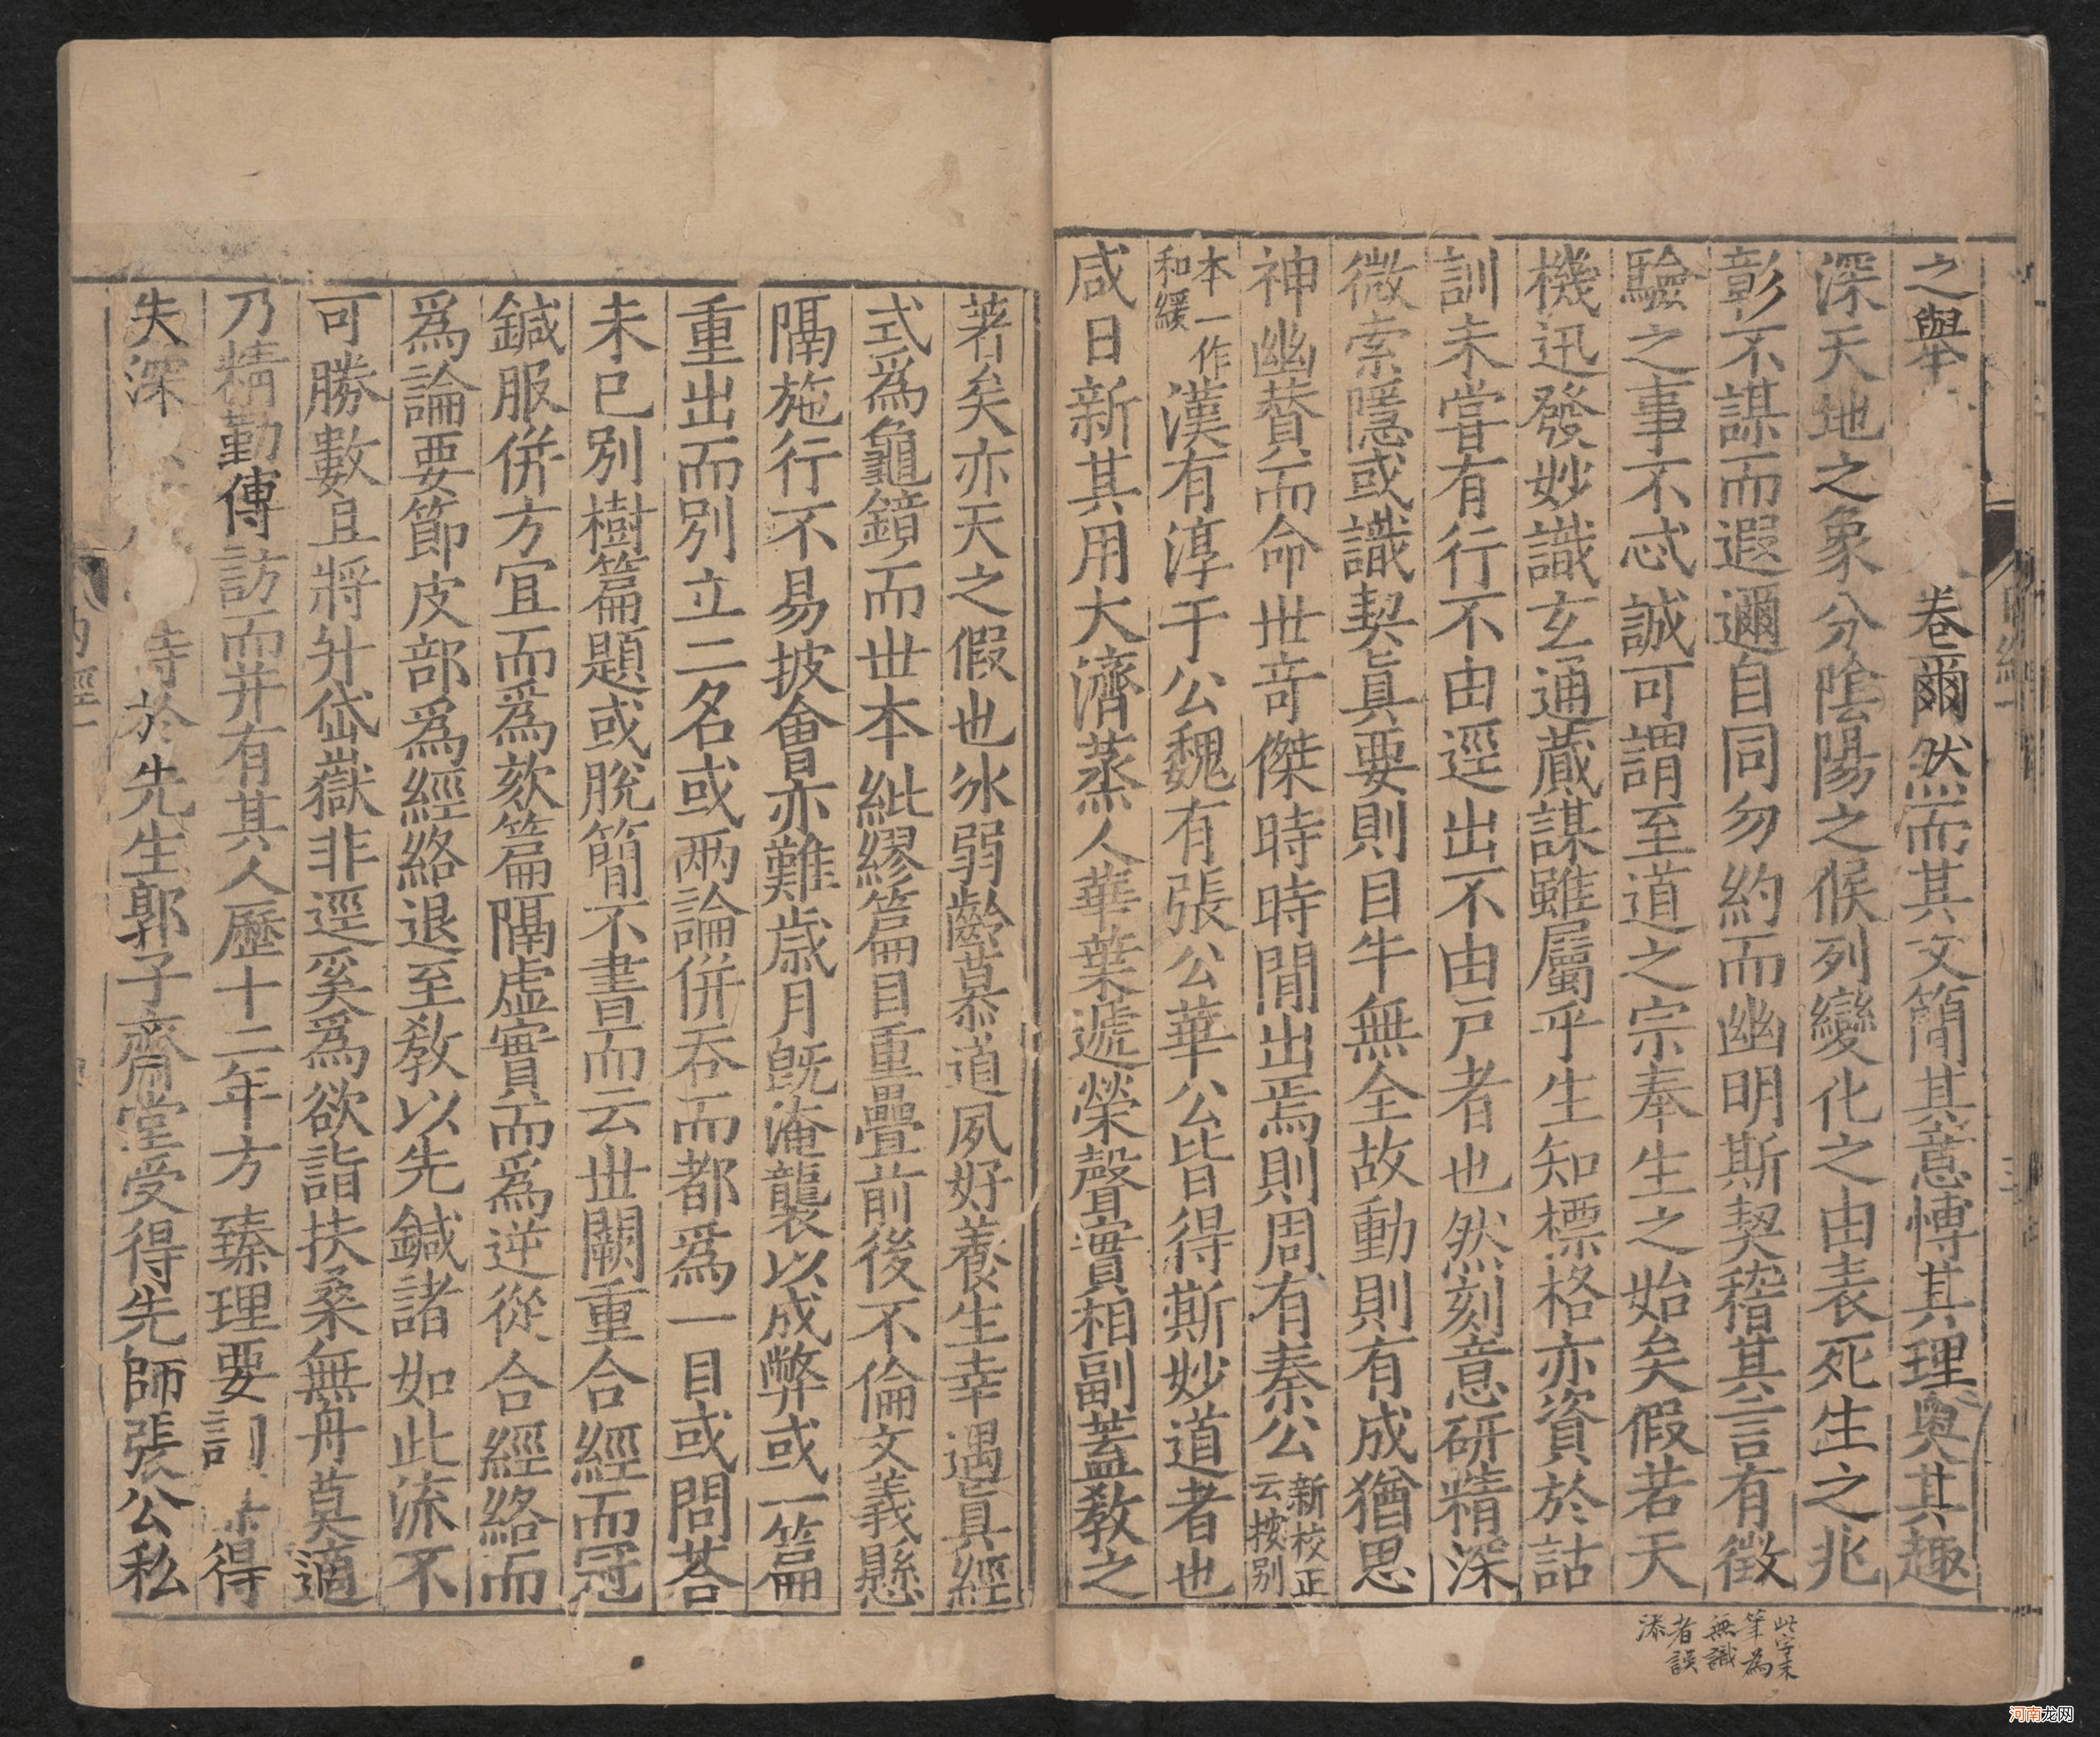 之舉卷爾然而其文簡其意愽其理奧其趣
深天地之象分陰陽之候列變化之由表死生之兆
彰不謀而遐邇自同勿約而幽明斯契稽其言有徴
驗之事不忒誠可謂至道之宗奉生之始矣假若天
機迅發妙識玄通蕆謀雖屬乎生知標格亦資於詁
訓未嘗有行不由逕出不由戸者也然刻意研精深
微索隱或識契眞要則目牛無全故動則有成猶思
神幽賛而命世竒傑時時間出焉則周有秦公新校正云按别
本一作和緩漢有淳于公魏有張公華公皆得斯妙道者也
咸日新其用大濟蒸人華葉遞榮聲實相副蓋敎之
著矣亦天之假也氷弱齡慕道夙好養生幸遇眞經
式爲龜鏡而世本紕繆篇目重疊前後不倫文義懸
隔施行不易披會亦難歳月旣淹襲以成弊或一篇
重出而别立二名或兩論併吞而都爲一目或問荅
未已别樹篇題或脫簡不書而云世闕重合經而冠
鍼服併方宜而爲欬篇隔虛實而爲逆從合經絡而
爲論要節皮部爲經絡退至敎以先鍼諸如此流不
可勝數且將升岱嶽非逕奚爲欲詣扶桑無舟莫適
乃精勤傳訪而并有其人歷十二年方臻理要訓得
失深時於先生郭子齋堂受得先師張公私
此字末
筆為
無識
者誤
添
内經一
三
河南龙网